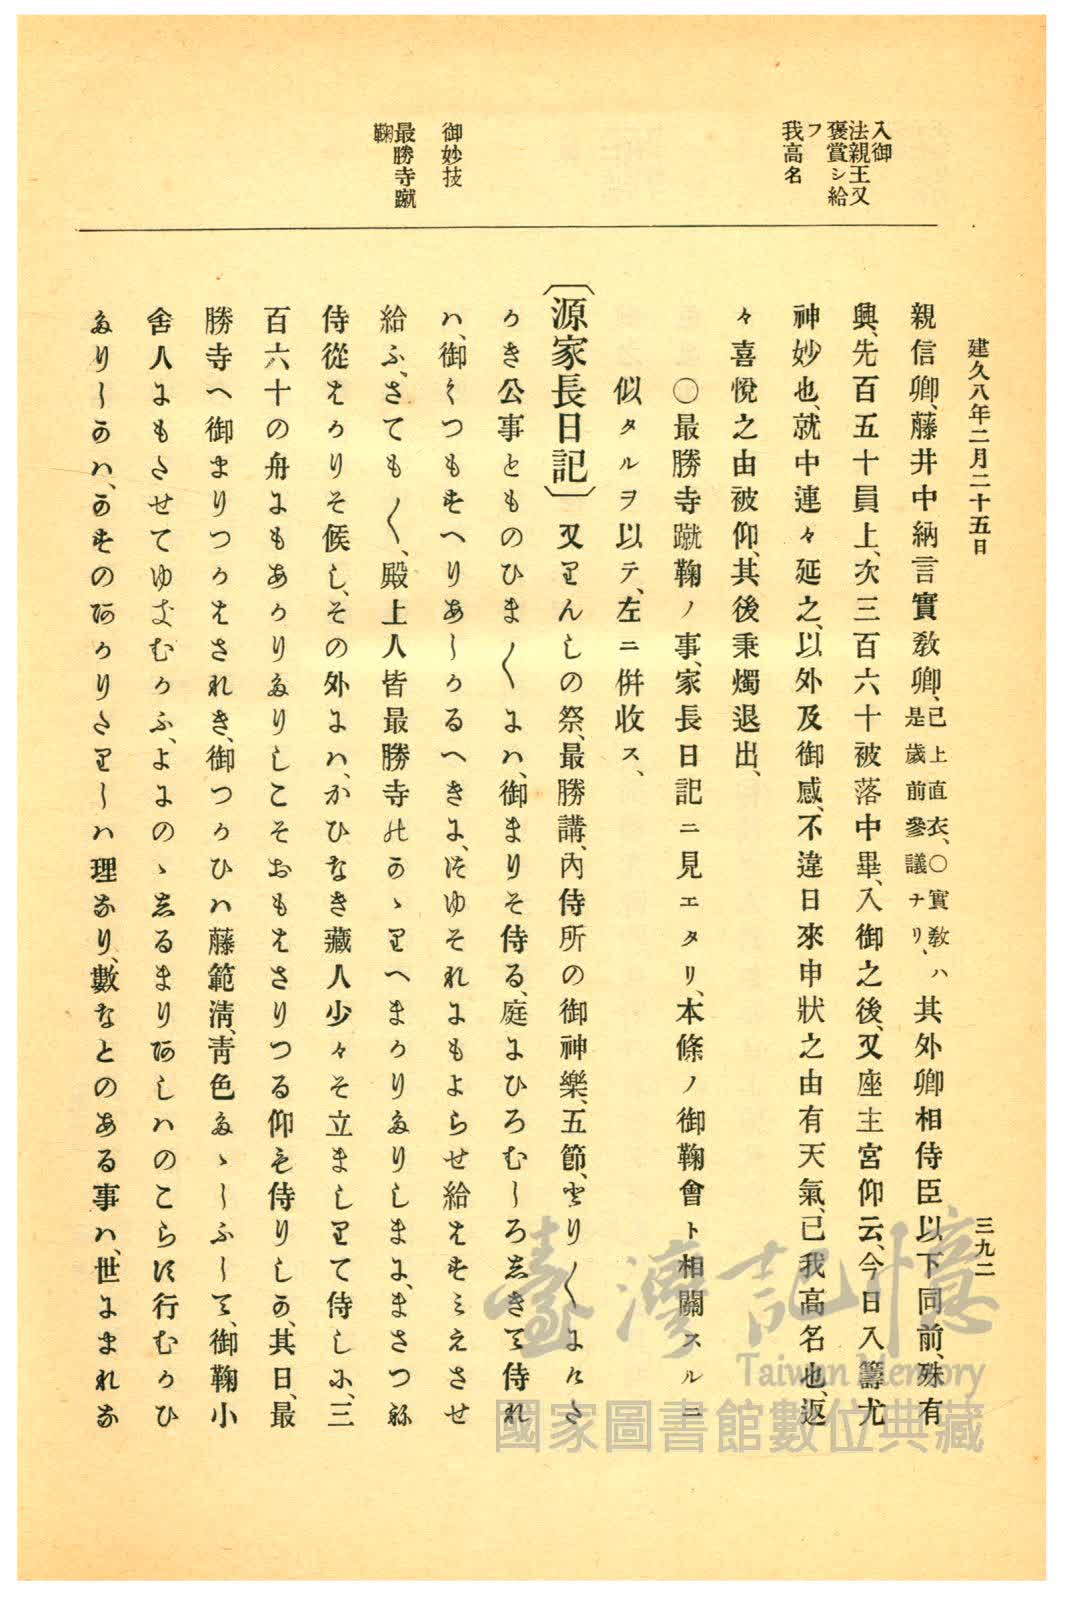 建久八年二月二十五日
三九二
入御
法親王又
褒賞シ給
フ
我高名
御妙技
最勝寺蹴
鞠
親信卿、藤井中納言實教卿、已上直衣、○實教ハ是歲前參議ナリ、其外卿相侍臣以下同前、殊有
興、先百五十員上、次三百六十被落中畢、入御之後、又座主宮仰云、今日入籌尤
神妙也、就中連々延之、以外及御感、不違日來申狀之由有天氣、已我高名也、返
々喜悅之由被仰、其後秉燭退出、
○最勝寺蹴鞠ノ事、家長日記ニ見エタリ、本條ノ御鞠會ト相關スルニ
似タルヲ以テ、左ニ併收ス、
〔源家長日記〕又りんしの祭、最勝講、內侍所の御神樂、五節、とり〱にけさ
うき公事とものひま〱にハ、御まりそ侍る、庭にひろむしろしきて侍れ
ハ、御くつもすへりあしかるへきに、つゆそれにもよらせ給はすミえさせ
給ふ、さても〱、殿上人皆最勝寺のかゝりへまかりたりしまに、まさつね
侍從はかりそ候し、その外にハ、かひなき藏人少々そ立ましりて侍しに、三
百六十の舟にもあかりたりしこそおもはさりつる仰も侍りしか、其日、最
勝寺へ御まりつかはされき、御つかひハ藤範淸、靑色たゝしふして、御鞠小
舍人にもたせてゆきむかふ、よにのゝしるまりあしハのこらす行むかひ
たりしかハ、かすのあかりたりしハ理なり、數なとのある事ハ、世にまれな
臺灣記憶
Taiwan Memory
國家圖書館數位典藏